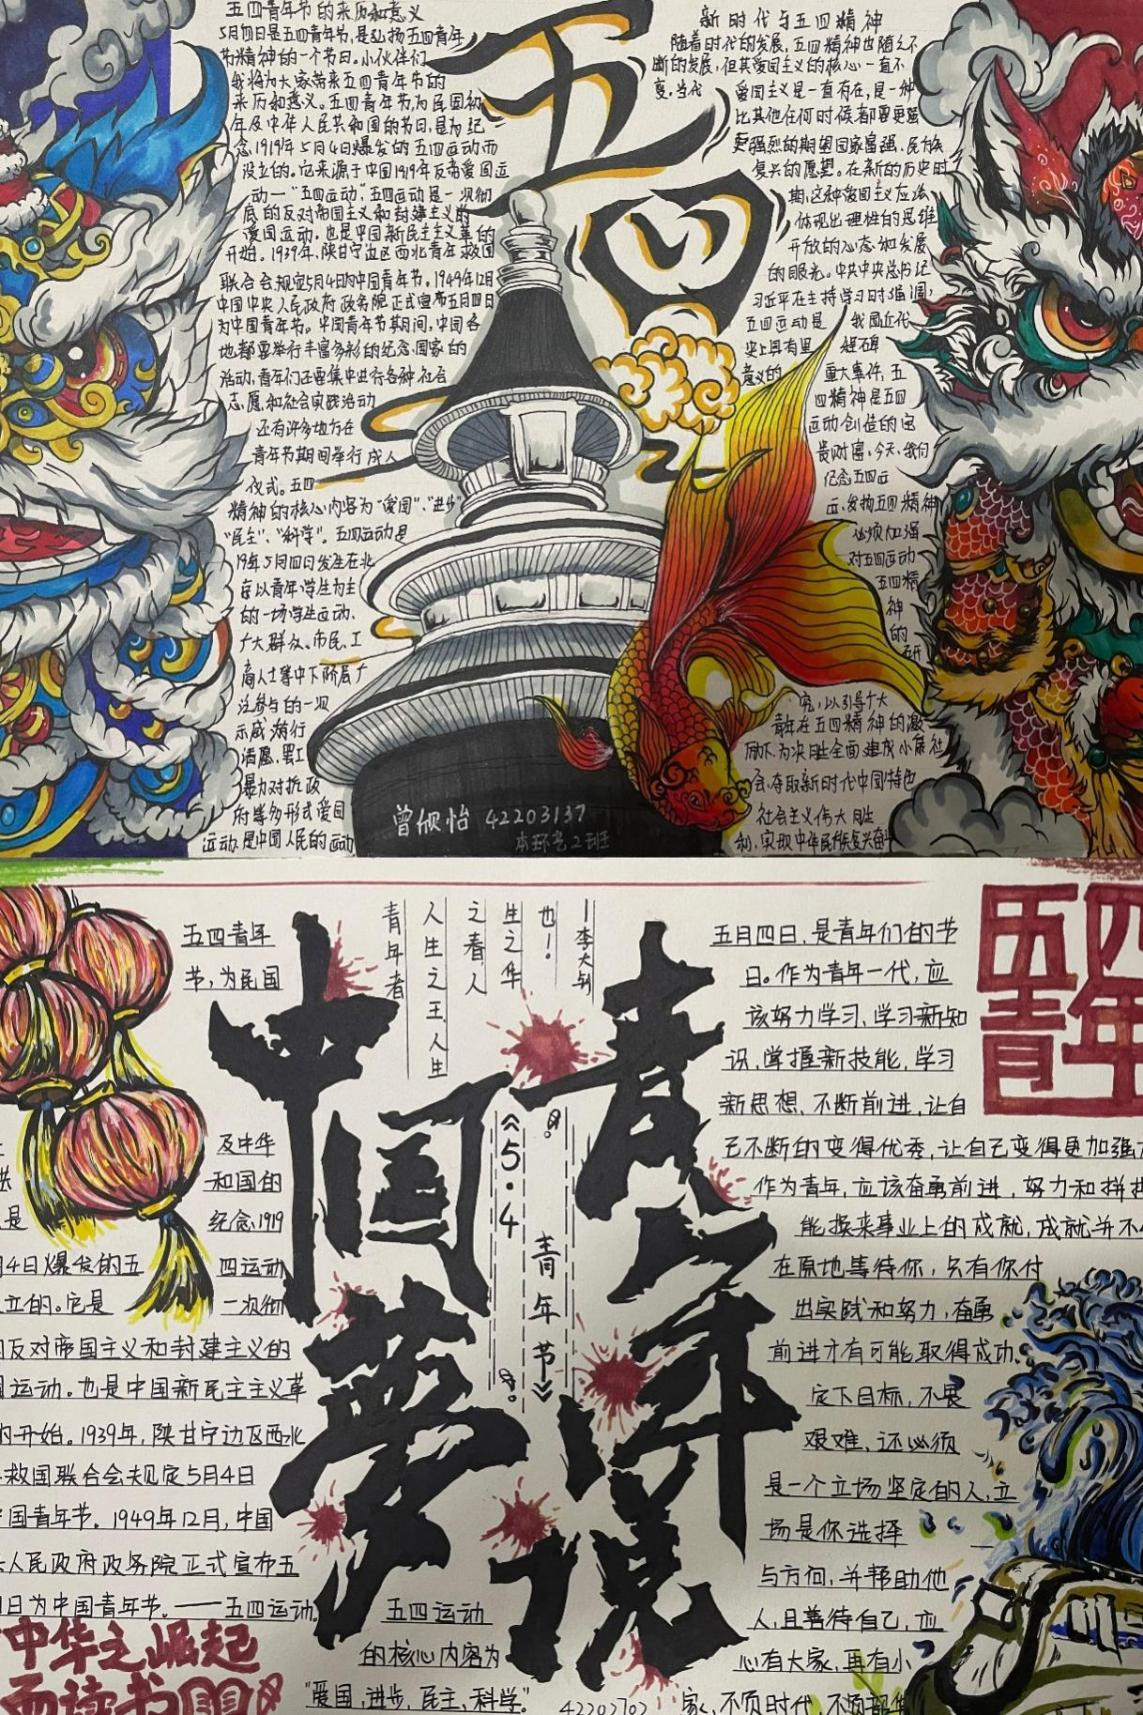 五四青年节的来历和意义
5月四日是五四青年节,是弘扬五四青年
节精神的一个节日。小伙伴们
我将为大家带来五四青年节的
来历和意义。五四青年节,为民国初
年及中华人民共和国的节日,是为纪
念1919年5月4日爆发的五四运动而
设立的。它来源于中国1919年反帝爱国运
动—"五四运动",五四运动是一次彻
底的反对帝国主义和封建主义的
爱国运动。也是中国新民主主义革的
开始。1939年,陕甘宁边区西北青年救国
联合会规定5月4日的中国青年节。1949年12月
中国中央人民政府政务院正式宣布五月四日
为中国青年节。中国青年节期间,中国各
地都要举行丰富多彩的纪念国家的
活动,青年们还要集中进行各种社会
志愿和社会实践活动
还有许多地方在
青年节期间举行成人
仪式。五四
精神的核心内容为"爱国"、"进步"
"民主"、"科学"。五四运动是
19年5月四日发生在北
京以青年学生为主
的一场学生运动、
广大群众、市民、工
商人士等中下阶层广
泛参与的一次
示威游行
请愿,罢工
暴力对抗政
府等多形式爱国
运动是中国人民的运动
五四
新时代与五四精神
随着时代的发展,五四精神也随之不
断的发展,但其爱国主义的核心一直不
变。当代
爱国主义是一直有在,是一种
比其他任何时候都要更强
更强烈的期望国家富强、民族
复兴的愿望。在新的历史时
期,这种爱国主义应该
体现出理性的思维
开放的心态和发展
的眼光。中共中央总书记
习近平在主持学习时强调,
五四运动是 我国近代
史上具有里 程碑
意义的 重大事件,五
四精神是五四
运动创造的宝
贵财富,今天,我们
纪念五四运
动、发扬五四精神
必须加强
对五四运动
五四精
神
的
研
究,以引导广大
青年在五四精神的激
励下,为决胜全面建成小康社
会,夺取新时代中国特色
社会主义伟大胜
利,实现中华民族复兴奋
42203137
本环艺2班
五四青年
节,为民国
及中华
和国的
是 纪念1919
4日爆发的五 四运动
立的。它是 一次彻
反对帝国主义和封建主义的
运动。也是中国新民主主义革
开始。1939年,陕甘宁边区西北
救国联合会规定5月4日
国青年节。1949年12月,中国
人民政府政务院正式宣布五
日为中国青年节。——五四运动
中华之崛起
而读书
中国梦
青年说
青年者
人生之王,人生
之春,人
生之华
也!
—李大钊
《5·4 青年节》
五四运动
的核心内容为
"爱国,进步,民主,科学"
五四
青年
五月四日,是青年们的节
日。作为青年一代,应
该努力学习,学习新知
识,掌握新技能,学习
新思想,不断前进,让自
己不断的变得优秀,让自己变得更加强
作为青年,应该奋勇前进,努力和拼
能换来事业上的成就,成就并不
在原地等待你,只有你付
出实践和努力,奋勇
前进才有可能取得成功。
定下目标,不畏
艰难,还必须
是一个立场坚定的人,立
场是你选择
与方向,并帮助他
人,且善待自己,应
心有大家,再有小
家,不负时代,不负韶华